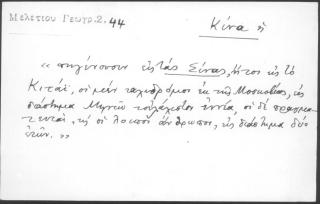 Μελετίου Γεωγρ. 2. 44
Κίνα ἡ
« πηγαίνουσιν εἰς τὰς Σίνας, ἤτοι εἰς τὸ
Κιτάϊ, οἱ μὲν ταχυδρόμοι ἐκ τῆς Μοσκοβίας, εἰς
διάστημα Μηνῶν τοὐλάχιστον ἐννέα, οἱ δὲ πραγμα-
τευταὶ, καὶ οἱ λοιποὶ ἄνθρωποι, εἰς διάστημα δύο
ἐτῶν. »